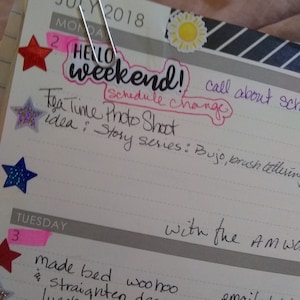 JULY 2018
MONDAY
2
HELLO
weekend!
call about
schedule change
Tea Time Photo Shoot
idea: Story series: Bujo, brush lettering
with the
TUESDAY
3
made bed woohoo
& straighten
email